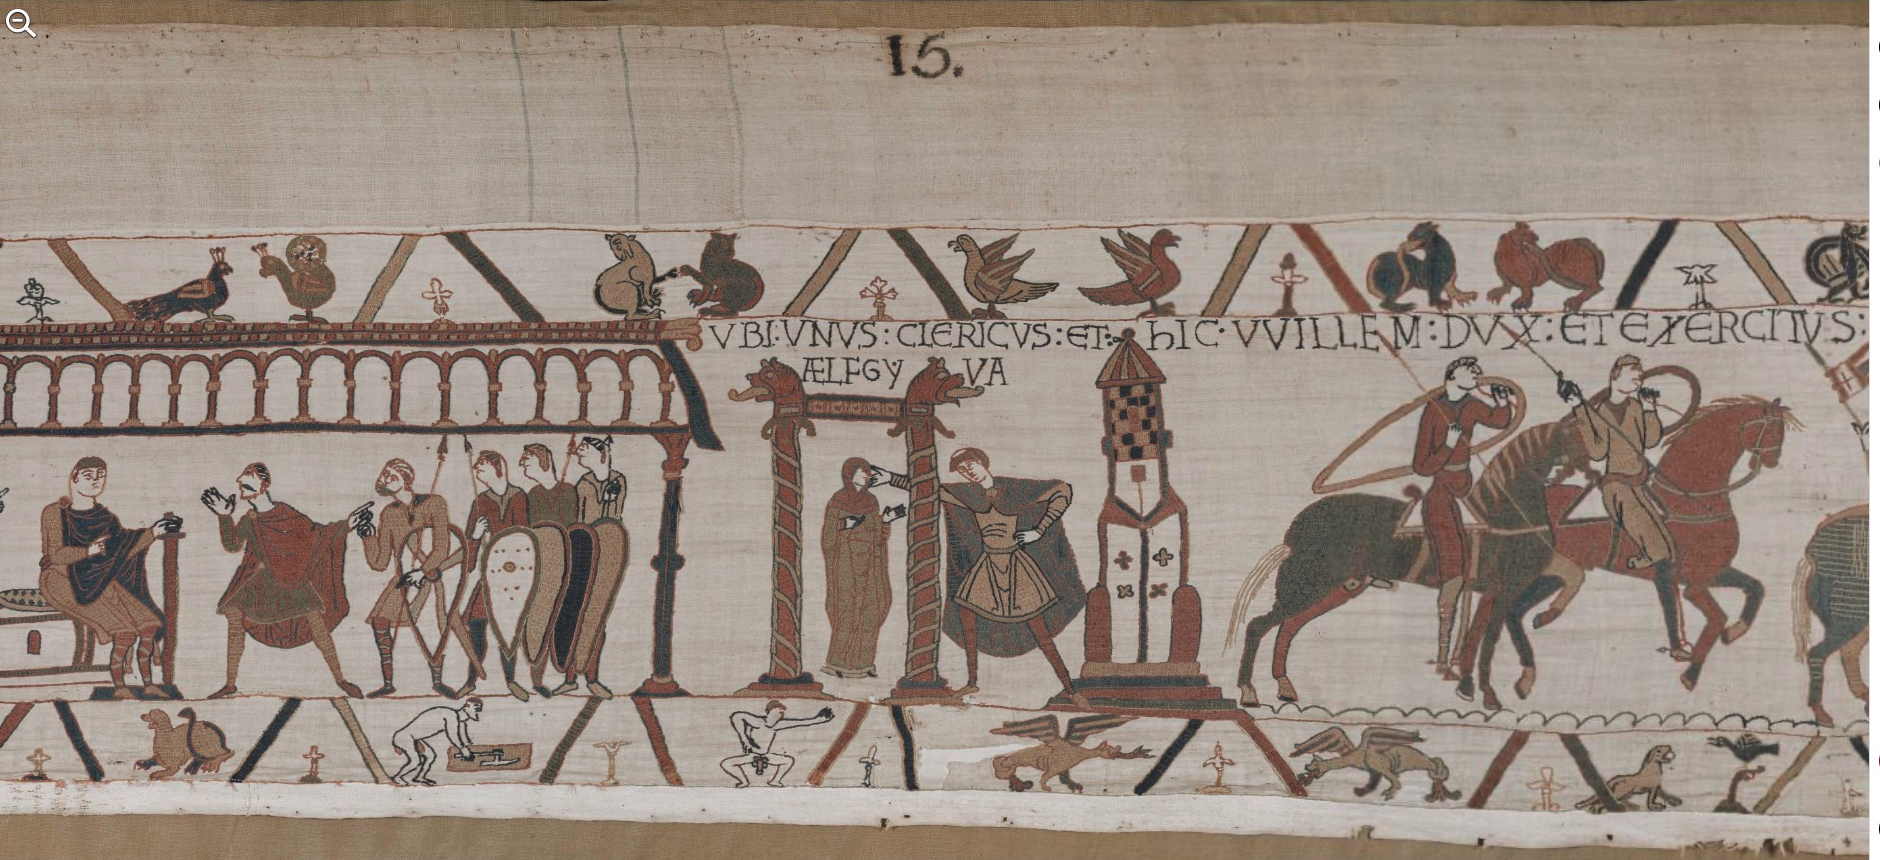 15.
VBI: VNVS: CLERICVS: ET· hIC· VVILLEM: DVX: ET EXERCITVS:
ÆLFGYVA